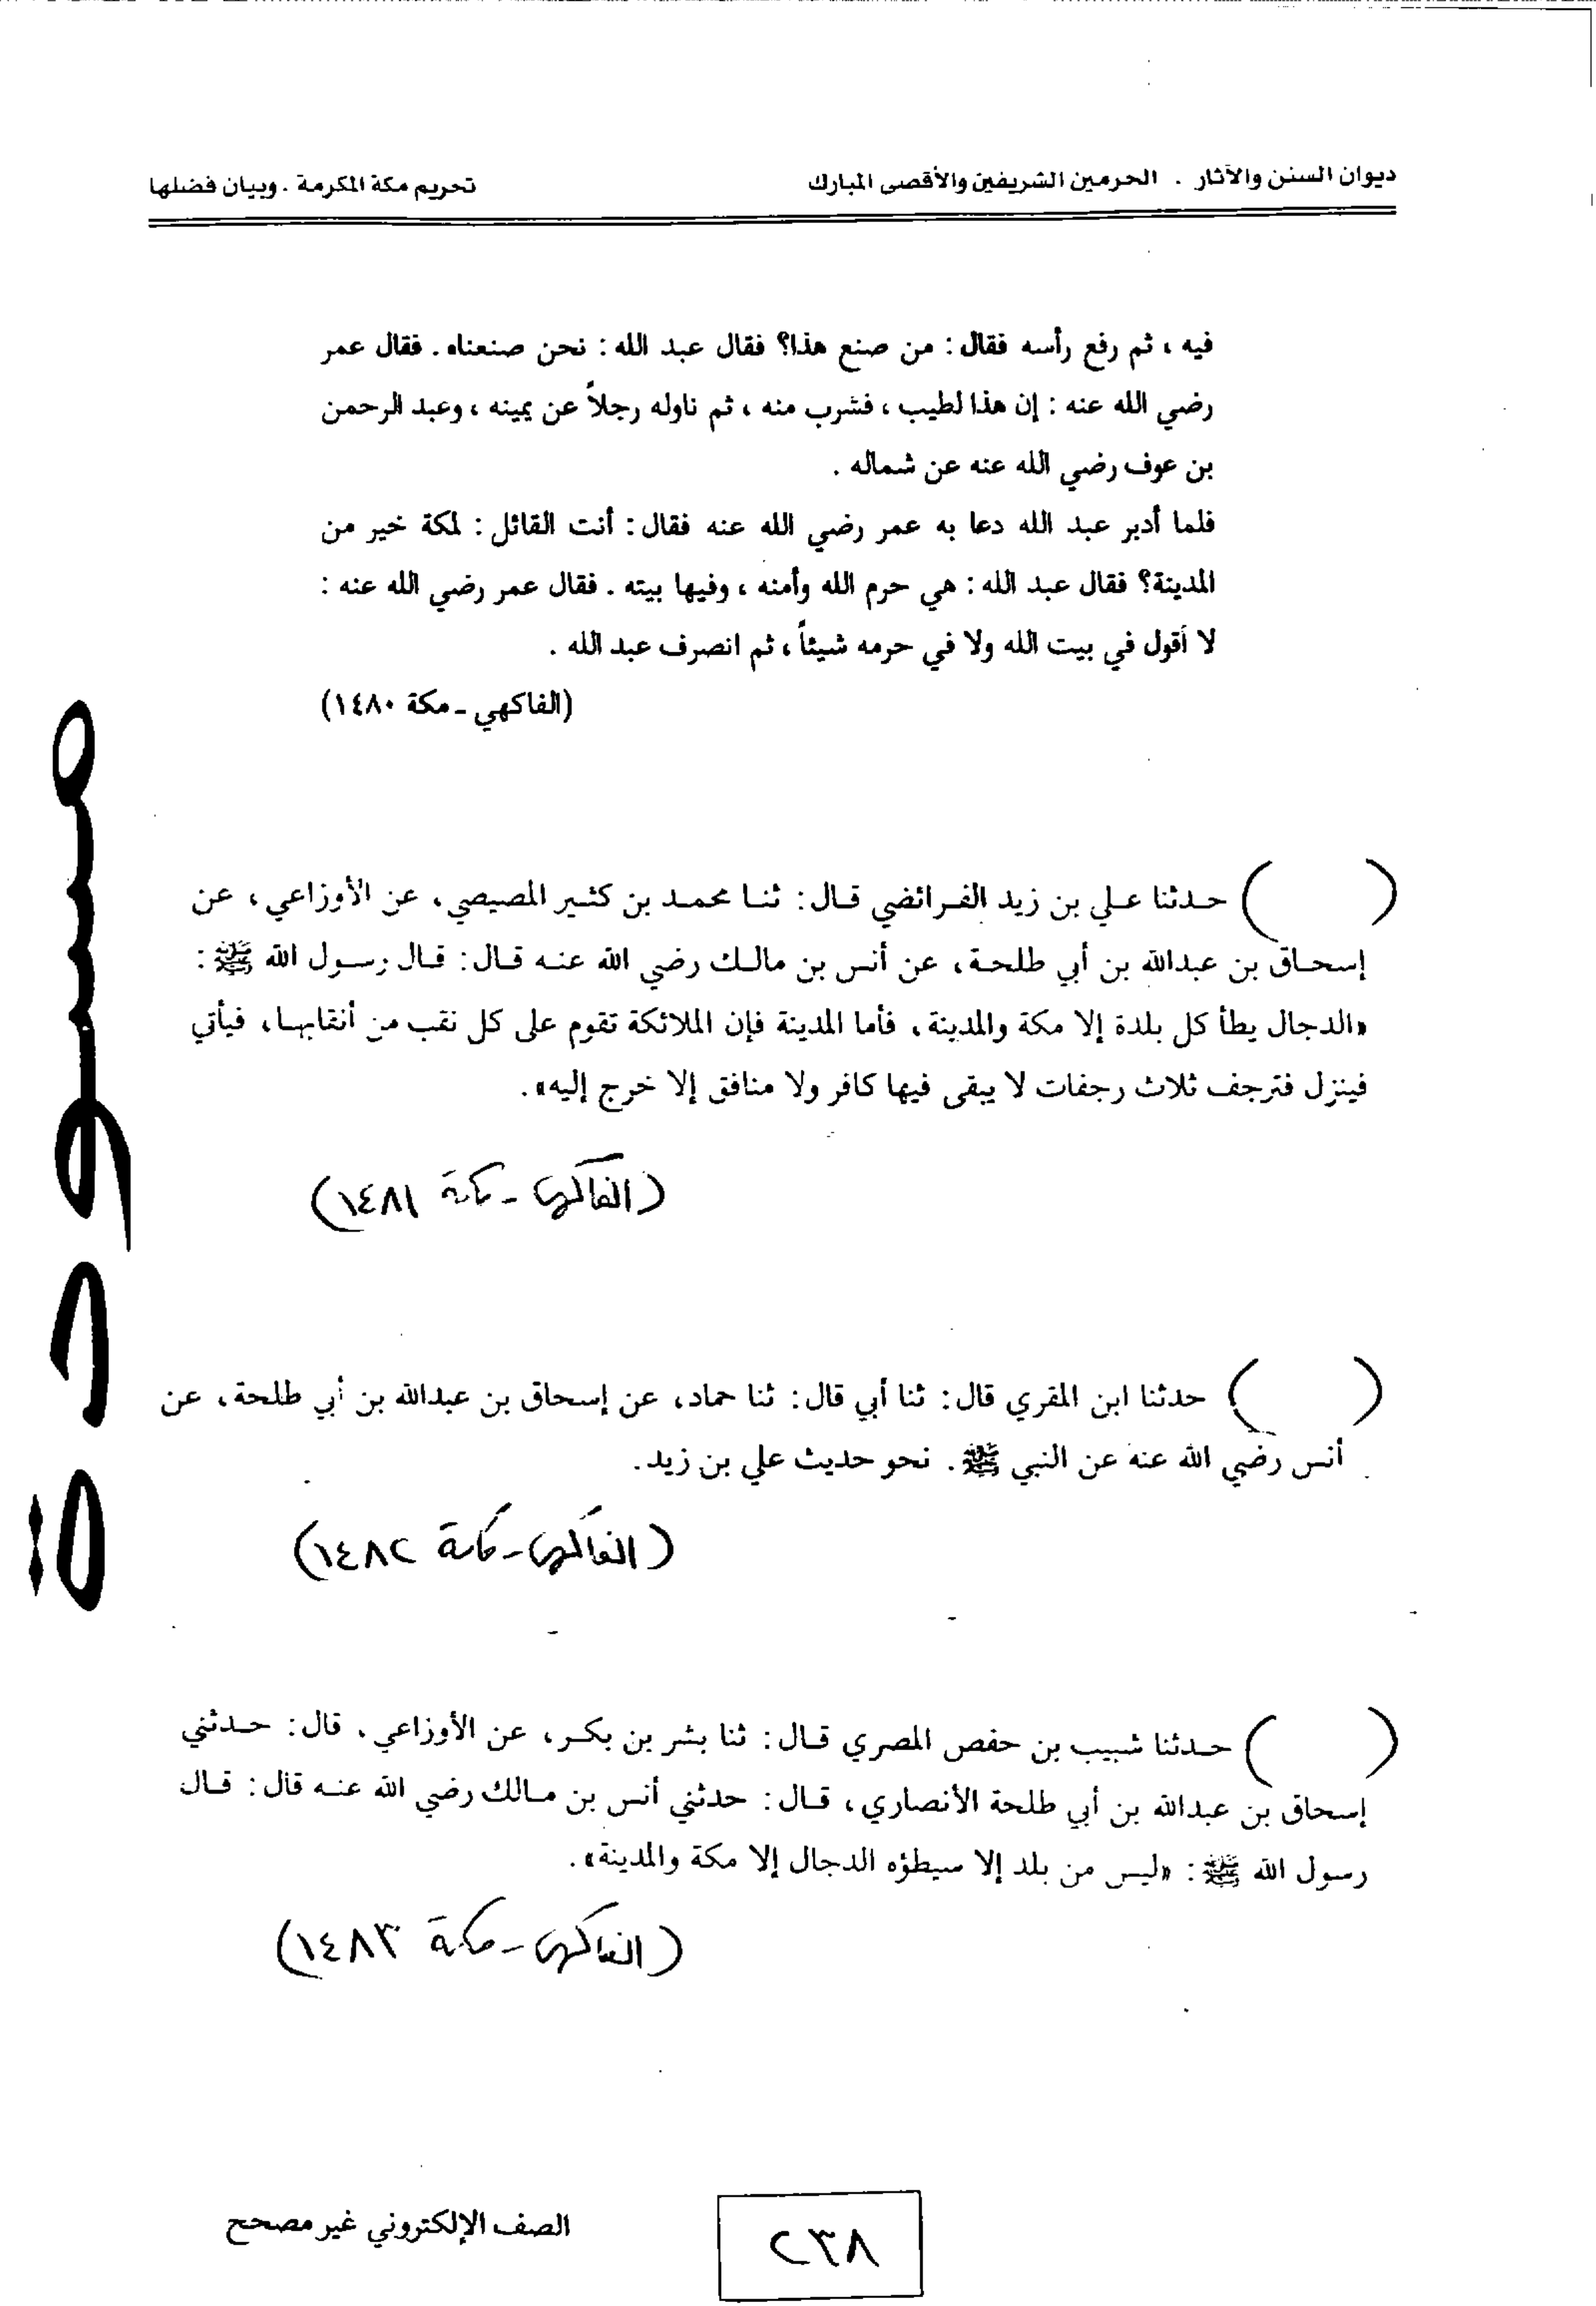 ديوان السنن والآثار . الحرمين الشريفين والأقصى المبارك
تحريم مكة المكرمة . وبيان فضلها
فيه ، ثم رفع رأسه فقال : من صنع هذا؟ فقال عبد الله : نحن صنعناه . فقال عمر
رضي الله عنه : إن هذا لطيب ، فشرب منه ، ثم ناوله رجلاً عن يمينه ، وعبد الرحمن
بن عوف رضي الله عنه عن شماله .
فلما أدبر عبد الله دعا به عمر رضي الله عنه فقال : أنت القائل : لمكة خير من
المدينة؟ فقال عبد الله : هي حرم الله وأمنه ، وفيها بيته . فقال عمر رضي الله عنه :
لا أقول في بيت الله ولا في حرمه شيئاً ، ثم انصرف عبد الله .
(الفاكهي ـ مكة ١٤٨٠)
( ) حدثنا علي بن زيد الفرائضي قال : ثنا محمد بن كثير المصيصي ، عن الأوزاعي ، عن
إسحاق بن عبدالله بن أبي طلحة ، عن أنس بن مالك رضي الله عنه قال : قال رسول الله ﷺ :
«الدجال يطأ كل بلدة إلا مكة والمدينة ، فأما المدينة فإن الملائكة تقوم على كل نقب من أنقابها ، فيأتي
فينزل فترجف ثلاث رجفات لا يبقى فيها كافر ولا منافق إلا خرج إليه» .
(الفاكهي - مكة ١٤٨١)
( ) حدثنا ابن المقري قال : ثنا أبي قال : ثنا حماد ، عن إسحاق بن عبدالله بن أبي طلحة ، عن
أنس رضي الله عنه عن النبي ﷺ . نحو حديث علي بن زيد .
(الفاكهي - مكة ١٤٨٢)
( ) حدثنا شبيب بن حفص المصري قال : ثنا بشر بن بكر ، عن الأوزاعي ، قال : حدثني
إسحاق بن عبدالله بن أبي طلحة الأنصاري ، قال : حدثني أنس بن مالك رضي الله عنه قال : قال
رسول الله ﷺ : «ليس من بلد إلا سيطؤه الدجال إلا مكة والمدينة» .
(الفاكهي - مكة ١٤٨٣)
مسودة
الصف الإلكتروني غير مصحح
٢٣٨